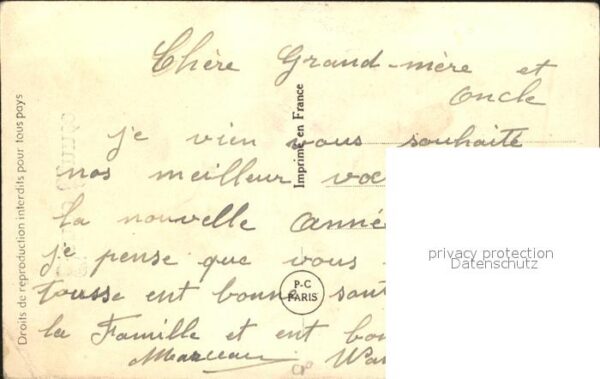 Chère Grand-mère et
oncle
je vien vous souhaité
nos meilleur
la nouvelle année
je pense que vous
tousse ent bonne
la Famille et ent
Marceau
Droits de reproduction interdits pour tous pays
Imprimé en France
P-C
PARIS
privacy protection
Datenschutz